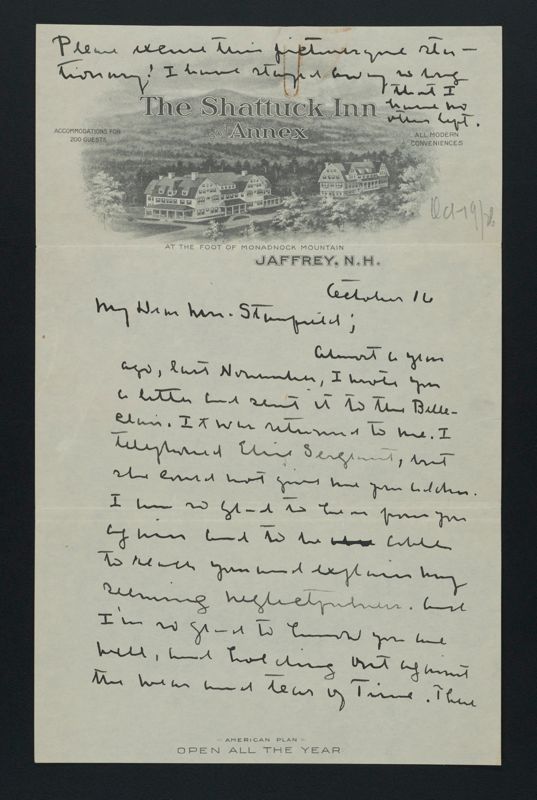 Please excuse this picturesque sta-
tionery! I have stayed away so long
that I
have no
other left.
The Shattuck Inn
and Annex
ACCOMMODATIONS FOR
200 GUESTS
ALL MODERN
CONVENIENCES
AT THE FOOT OF MONADNOCK MOUNTAIN
JAFFREY, N.H.
October 16
My Dear Mrs. Stanfield;
Almost a year
ago, last November, I wrote you
a letter and sent it to the Belle-
clair. It was returned to me. I
telephoned Elsie Sergeant, but
she could not give me your address.
I am so glad to hear from you
again and to be able
to reach you and explain my
seeming neglectfulness. And
I'm so glad to know you are
well, and holding out against
the wear and tear of Time. There
- AMERICAN PLAN -
OPEN ALL THE YEAR